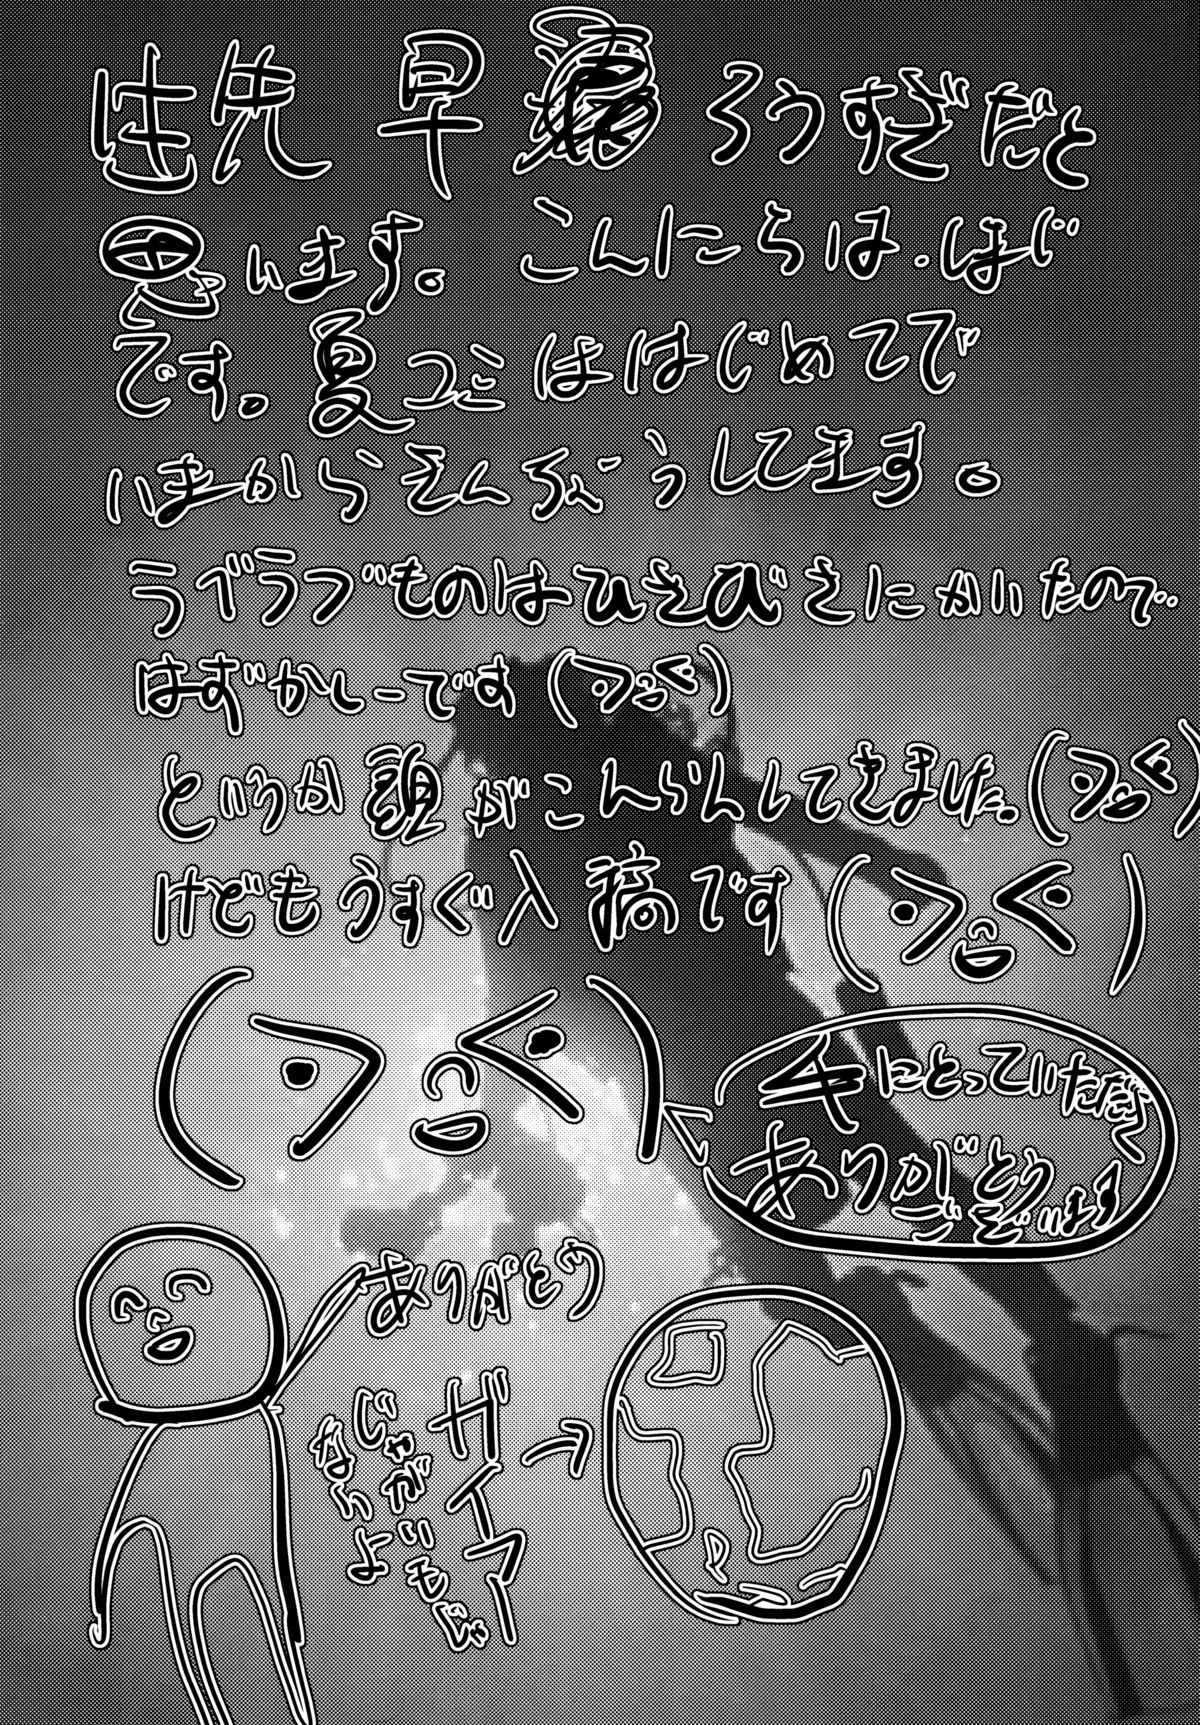 先生 早ろうすぎだと
思います。こんにちは、はじ
です。夏コミははじめてで
いまからぞんぶうしてます。
ラブラブものはひさびさにかいたので
はずかしーです
というか頭がこんらんしてきました。
けどもうすぐ入稿です
手にとっていただき
ありがとう
ございます
ありがとう
ガイアー
じゃがいもじゃ
ないよ